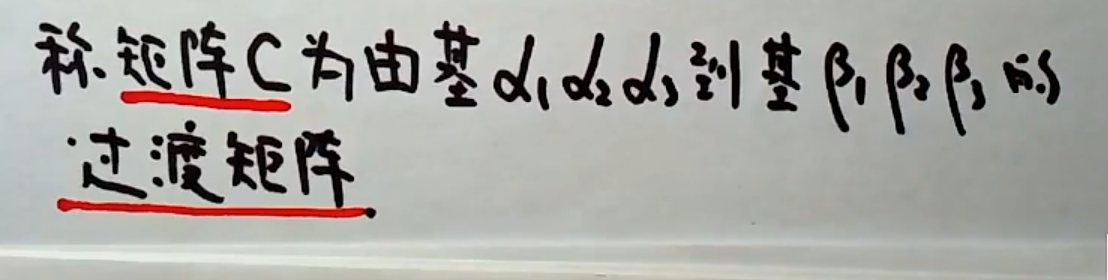 称矩阵C为由基α₁α₂α₃到基β₁β₂β₃的
过渡矩阵.